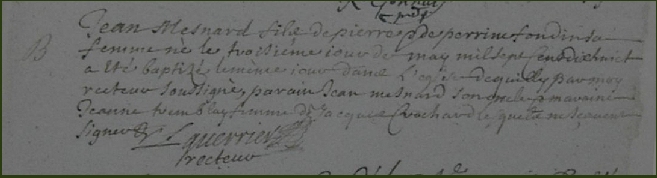 B
Jean Mesnard fils de pierre & de perrine fondin sa
femme ne le troisieme iour de may mil sept cens dix huict
a été baptizé le même iour dans l'eglise de quilly par moy
recteur soussigné, parain Jean mesnard son oncle maraine
Jeanne tremblay femme de Jacques Crochard lesquels ne scavent
signer
L guerrier
recteur